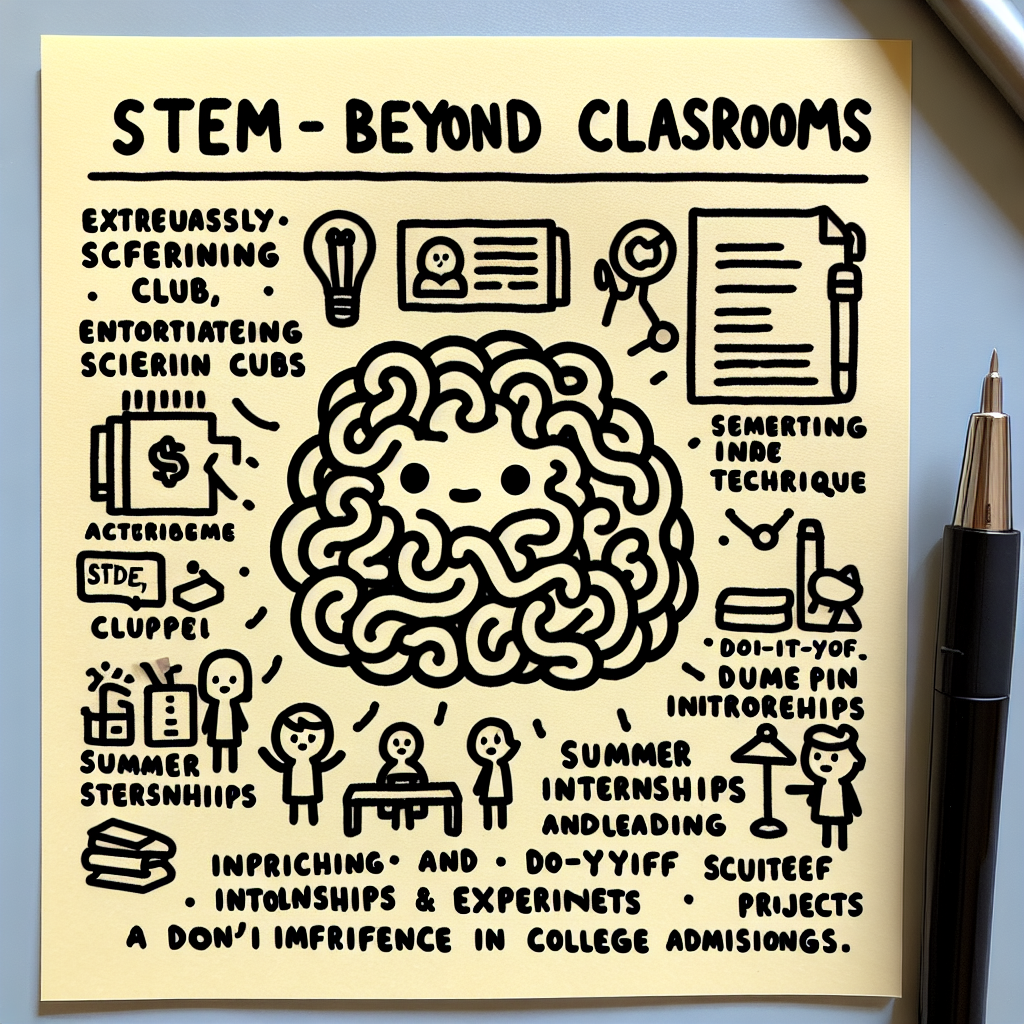 STEM - BEYOND CLASROOMS
EXTREUASSLY·
SCFERINING
· CLUB, ·
ENTORTIATEING
SCIERIIN CUBS
$
ACTERIBEME
STDE,
CLUPPEI
SUMMER
STERSNHIIPS
SEMERTING
INDE
TECHRIQUE
·DOI-IT-YOF.
DUME PIN
INITROREHIPS
SUMMER
INTERNSHIPS
ANDLEADING
INPRICHING· AND · DO-YYIFF SCUITEEF
· INTOLNSHIPS & EXPERINETS · PRIJECTS
A DON'I IMFRIFENCE IN COLLEGE ADMISIONGS.